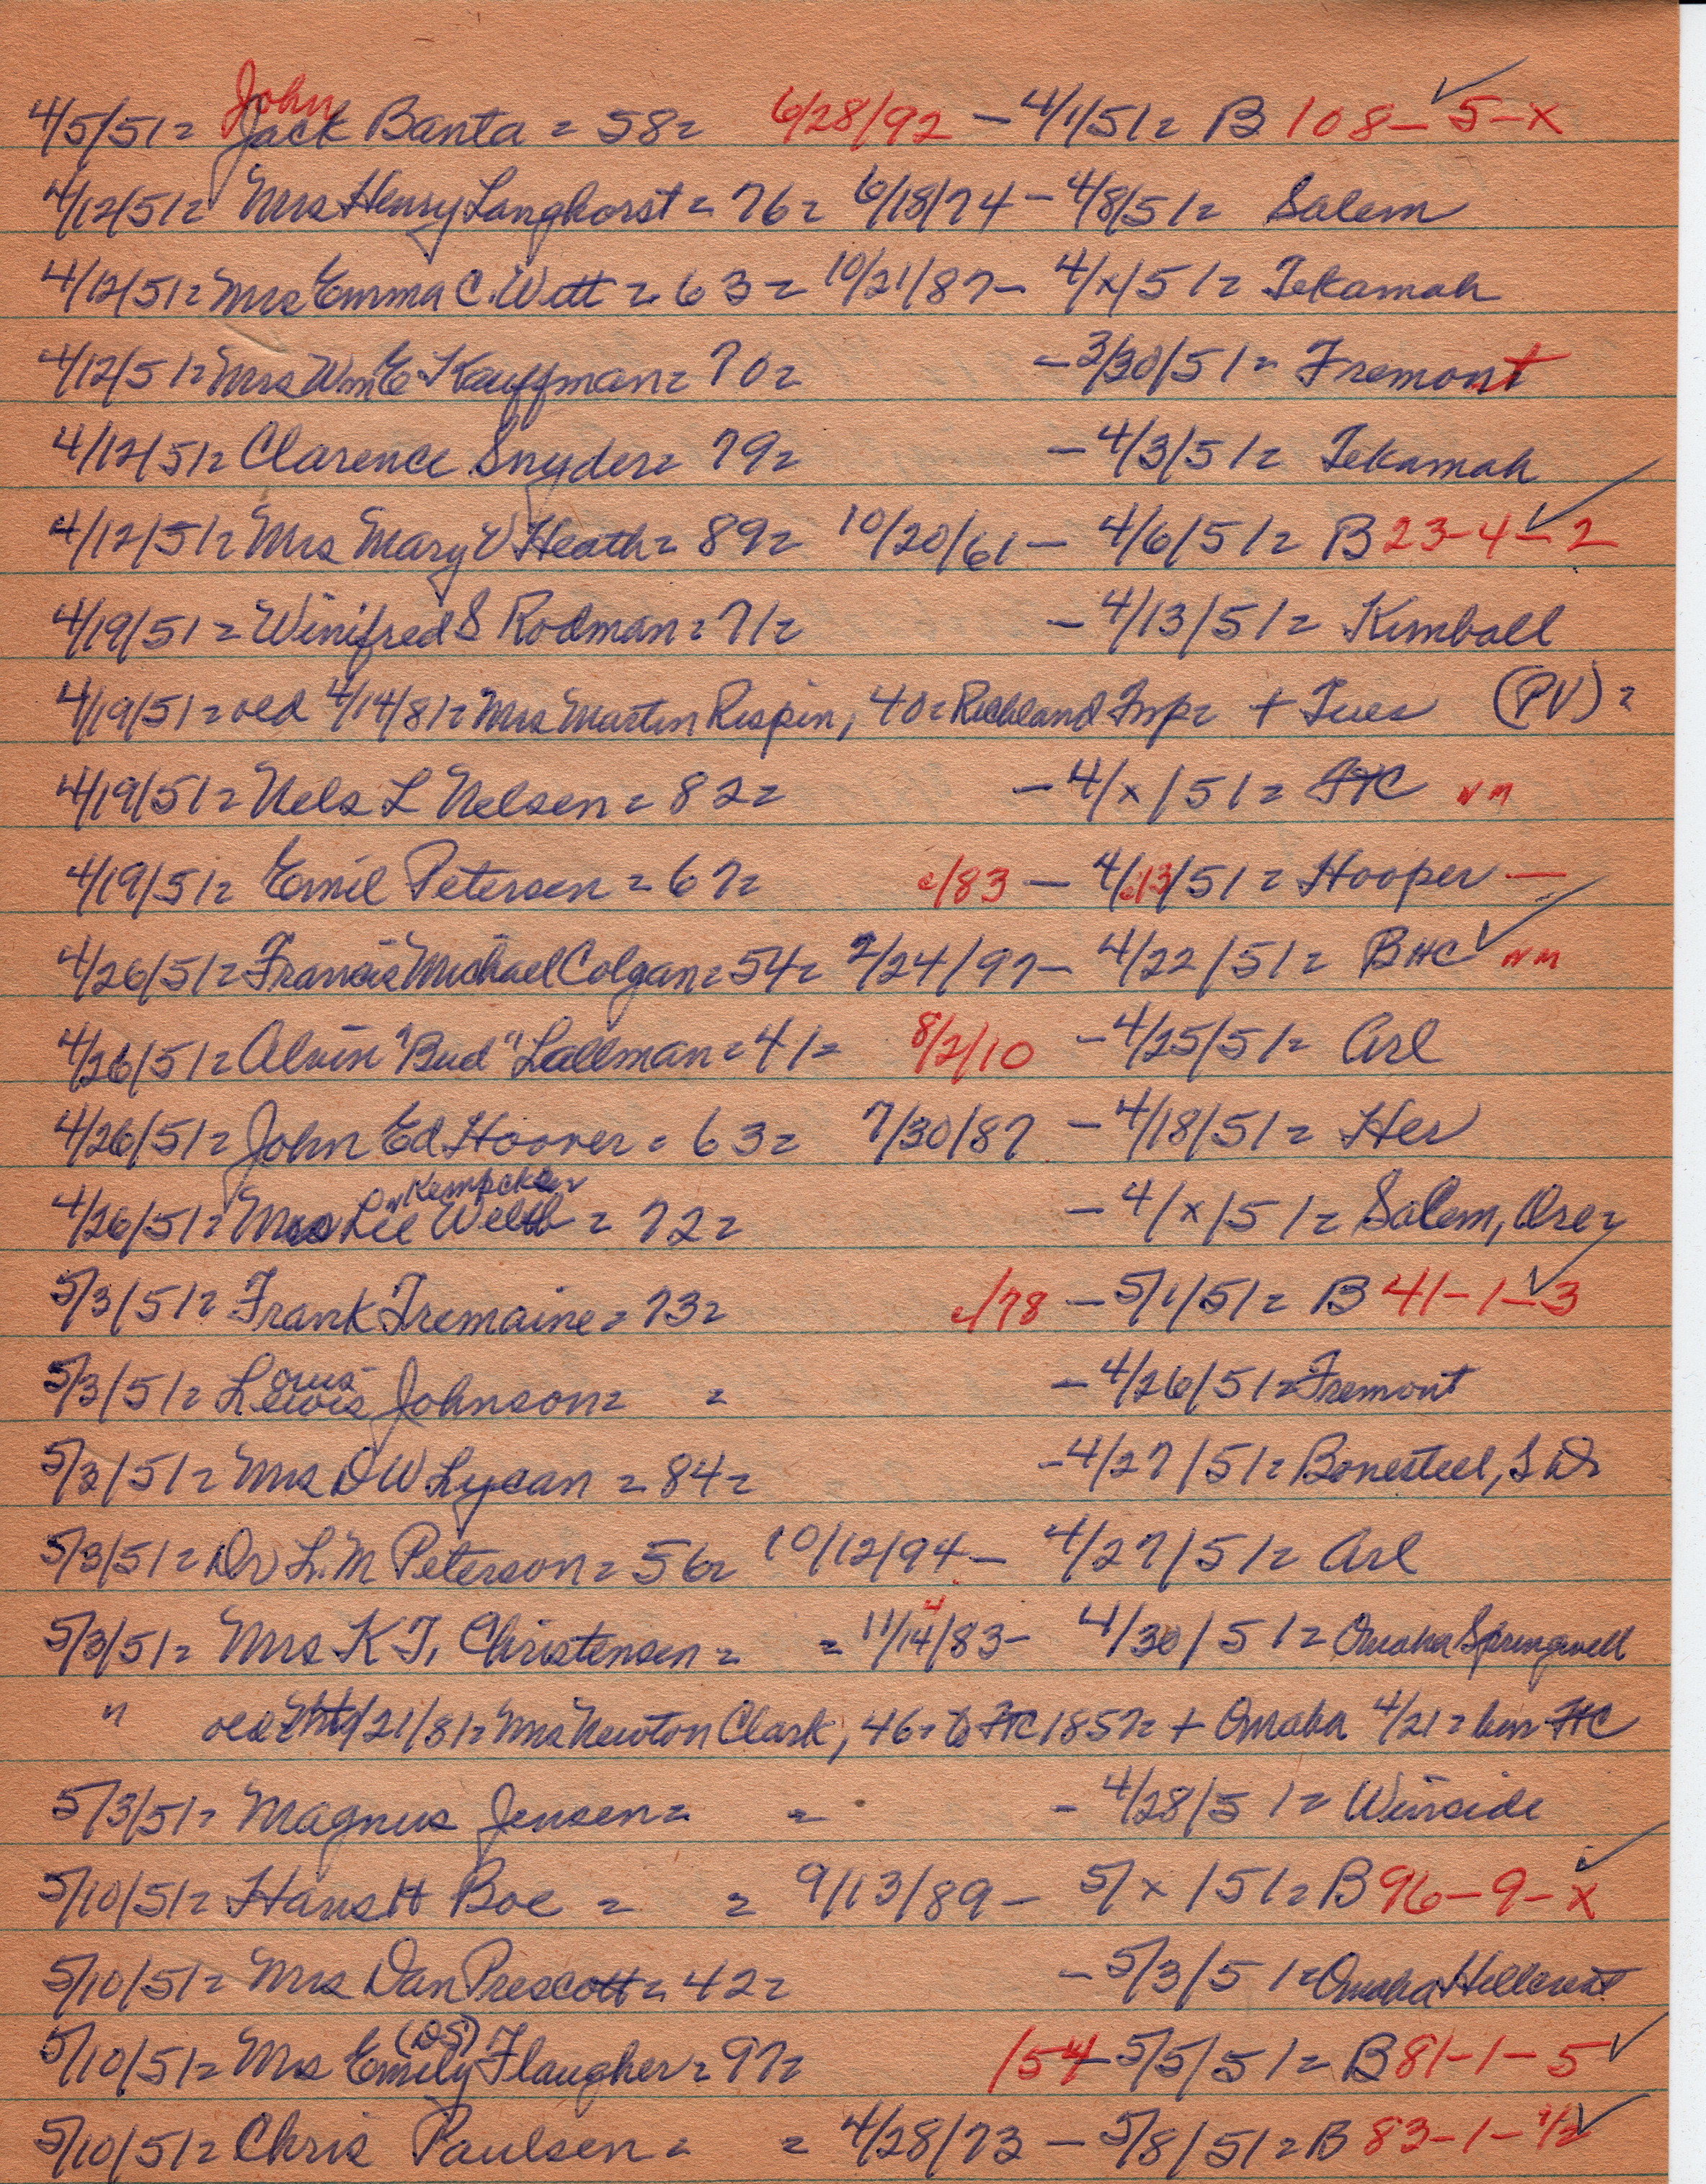 John
4/5/51= Jack Banta = 58= 6/28/92 - 4/1/51= B 108-5-x
4/12/51= Mrs Henry Langhorst = 76= 6/18/74 - 4/8/51= Salem
4/12/51= Mrs Emma C. Witt = 63= 10/21/87- 4/x/51= Tekamah
4/12/51= Mrs Wm E Kauffman= 70= - 3/30/51= Fremont
4/12/51= Clarence Snyder= 79= - 4/3/51= Tekamah
4/12/51= Mrs Mary V Heath= 89= 10/20/61- 4/6/51= B 23-4-2
4/19/51= Winifred S Rodman= 71= - 4/13/51= Kimball
4/19/51= old 4/14/81= Mrs Martin Rispin, 40= Richland Twp= + Tues (PV)=
4/19/51= Nels L Nelsen= 82= - 4/x/51= HC NM
4/19/51= Emil Petersen= 67= c/83 - 4/c13/51= Hooper -
4/26/51= Francis Michael Colgan= 54= 2/24/97- 4/22/51= BHC NM
4/26/51= Alvin "Bud" Lallman= 41= 8/2/10 - 4/25/51= Arl
4/26/51= John Ed Hoover= 63= 7/30/87 - 4/18/51= Her
Dr Kempcker
4/26/51= Mrs Lee Welth = 72= - 4/x/51= Salem, Ore=
5/3/51= Frank Tremaine= 73= c/78 - 5/1/51= B 41-1-3
ouis
5/3/51= Lewis Johnson= = - 4/26/51= Fremont
5/3/51= Mrs D W Lycan = 84= - 4/27/51= Bonesteel, S D=
5/3/51= Dr L.M Peterson= 56= 10/12/94- 4/27/51= Arl
4
5/3/51= Mrs K T. Christensen= = 11/14/83- 4/30/51= Omaha Springwell
" old 4/21/81= Mrs Newton Clark, 46= to HC 1857= + Omaha 4/21= bur HC
5/3/51= Magnus Jensen= = - 4/28/51= Winside
5/10/51= Hans H Boe = = 9/13/89- 5/x/51= B 96-9-x
5/10/51= Mrs Dan Prescott= 42= - 5/3/51= Omaha Hillcrest
(DS)
5/10/51= Mrs Emily Flaugher= 97= /54- 5/5/51= B 81-1-5
5/10/51= Chris Paulsen= = 4/28/73 - 5/8/51= B 83-1-1/2